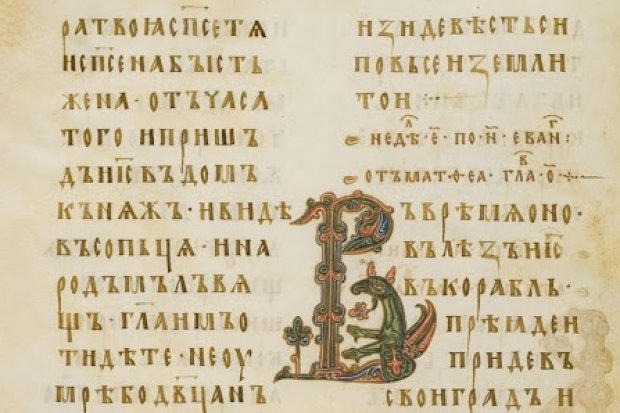 РАТВОꙖСП҃СЕТѦ
ИСП҃СЕНАБꙐСТЬ
ЖЕНА · ОТЪЧАСА
ТОГО ИПРИШЬ
ДЪИ҃СВЪДОМЪ
КЪНѦЖЬ · ИВИДѢ
ВЪСОПЬЦѦ · ИНА
РОДЪМЪЛЪВѦ
ЩЬ · ГЛ҃АИМЪО
ТИДѢТЕ · НЕОУ
МРѢБОДВ҃ЦАНЪ
ИЗИДЕВѢСТЬСИ
ПОВЬСЕИЗЕМЛИ
ТОИ ·
НЕДѢⷧ · Е҃ · ПО · Н҃ · ЕВАНⷢ :
ОТЪМАТ · Ѳ · ЕА · ГЛАⷡ · О҃ ·
ВЪВРЕМѦОНО ·
ВЪЛѢЗЪИ҃С
ВЪКОРАБЛЬ ·
ПРИДЕВЪ
СВОИГРАДЪИ